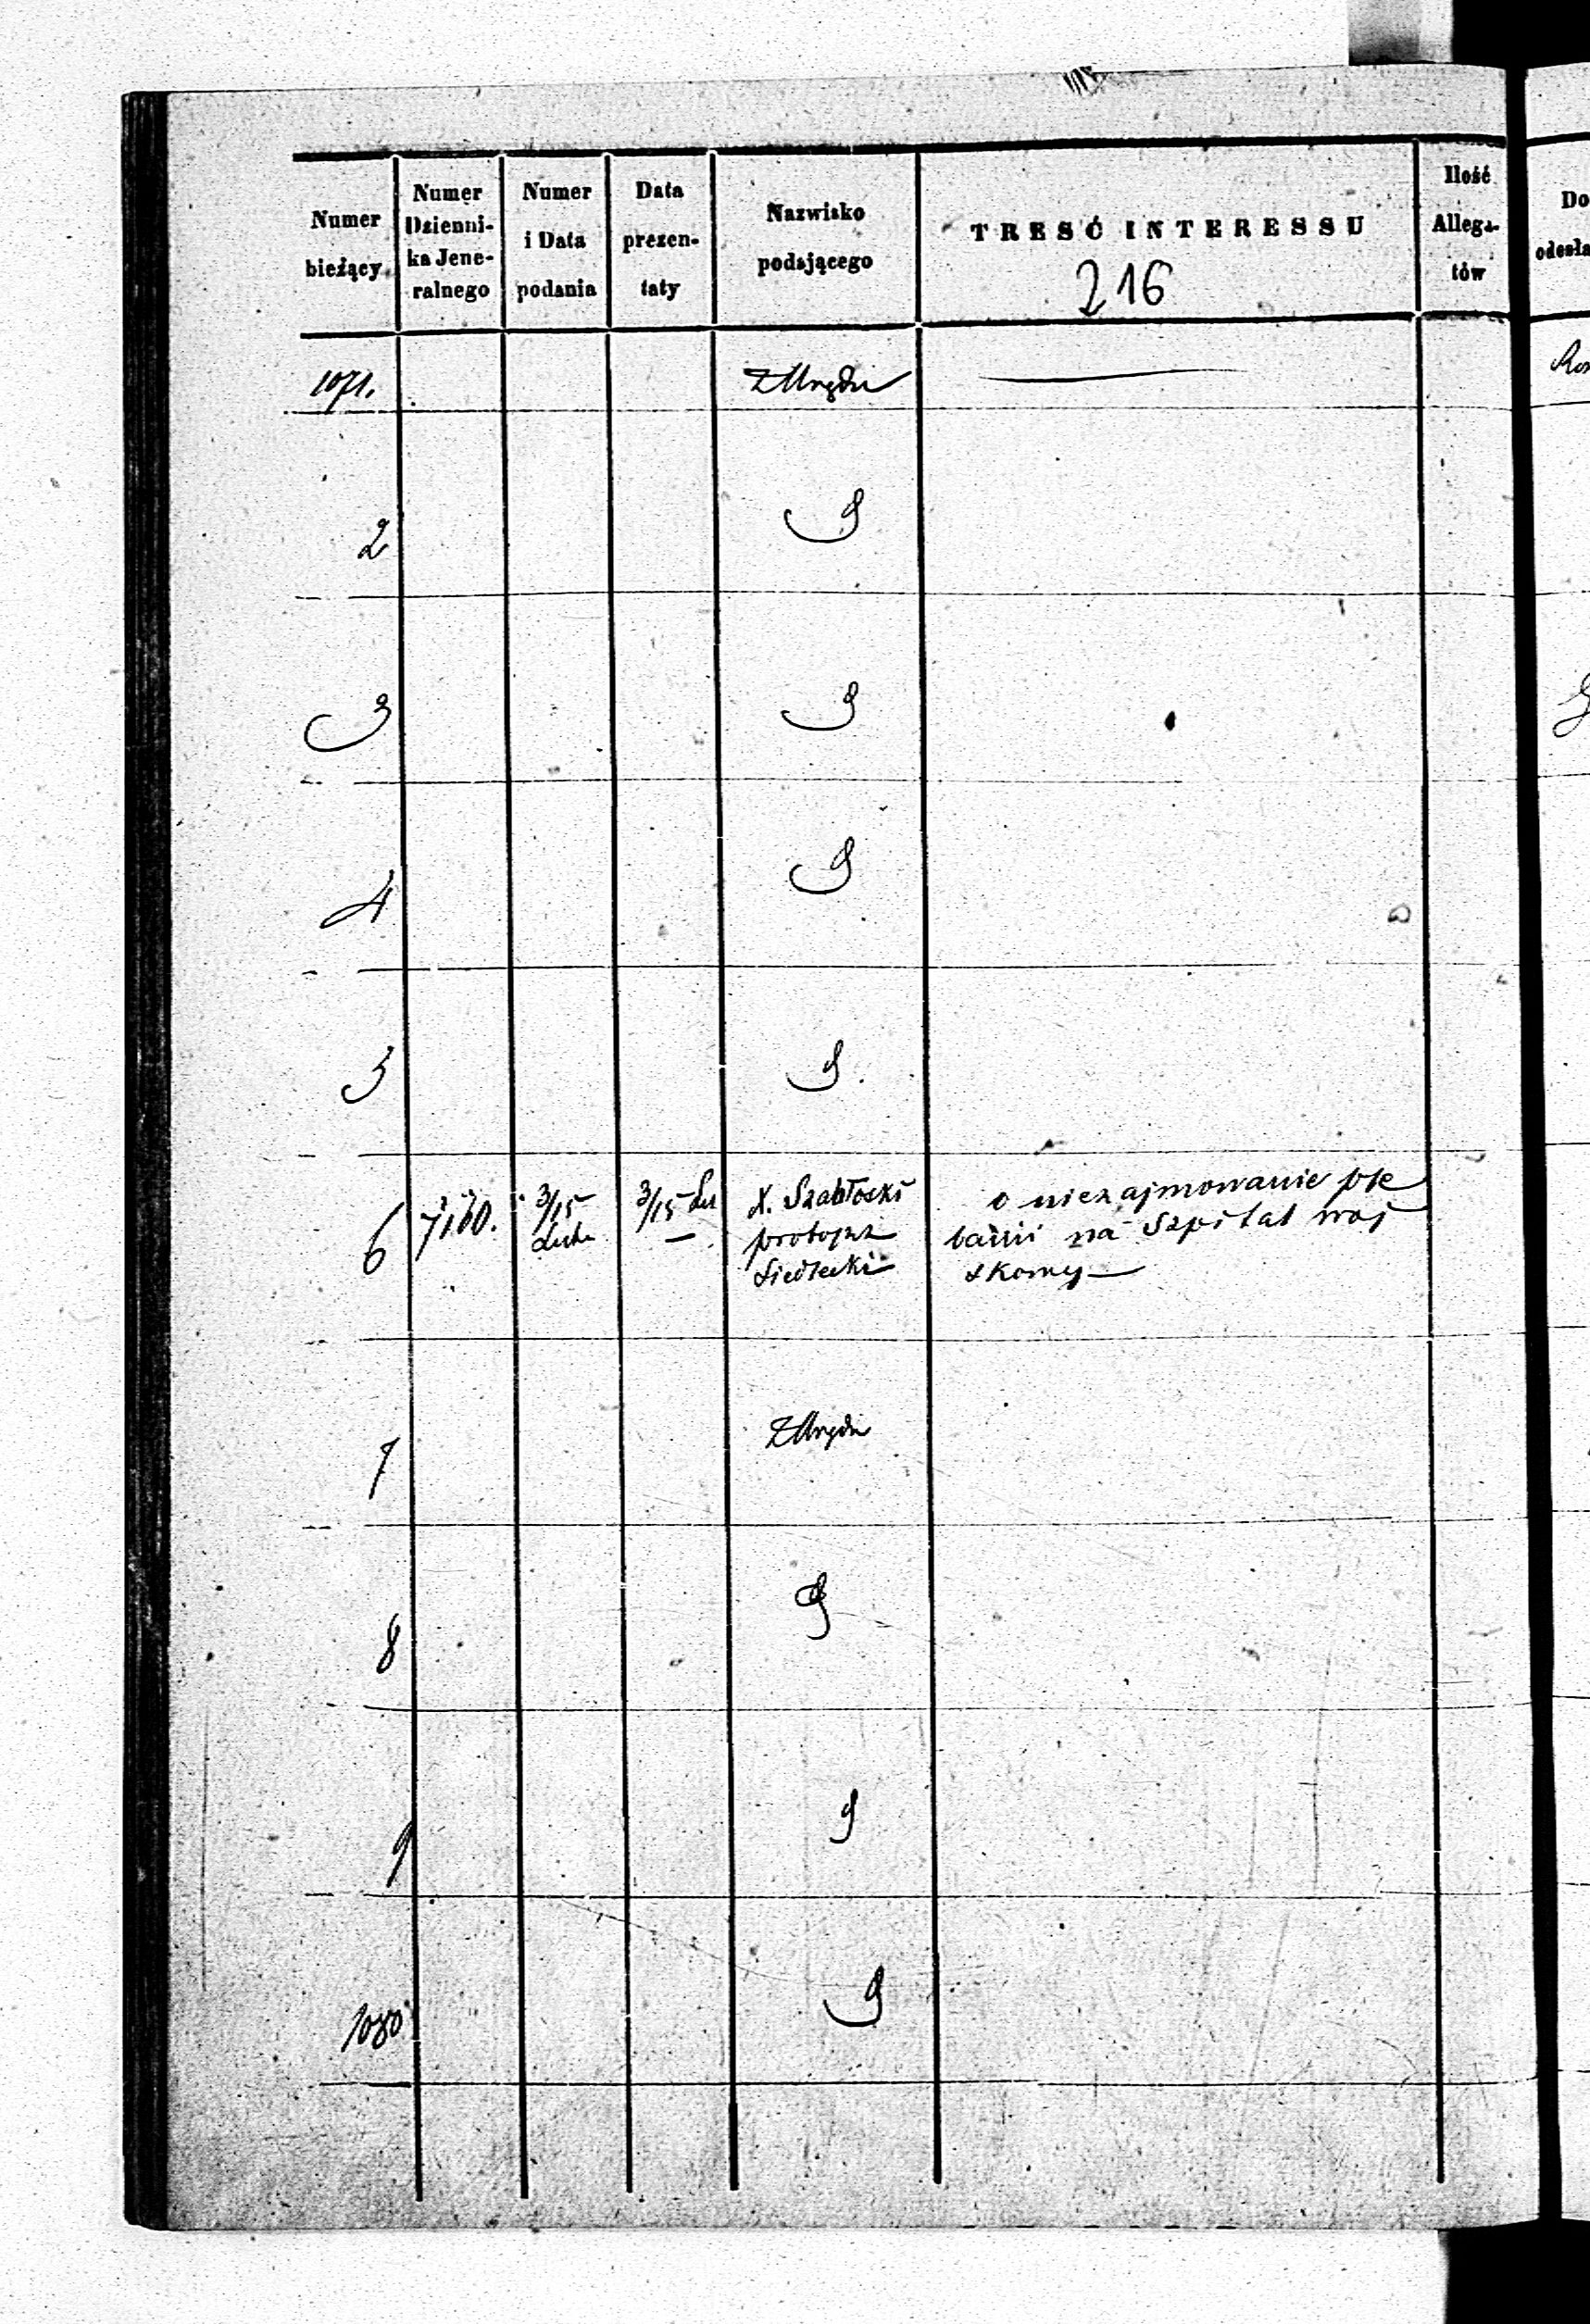 Numer
bieżący.
Numer
Dzienni-
ka Jene-
ralnego
Numer
i Data
podania
Data
prezen-
taty
Nazwisko
podającego
TRESĆ INTERESSU
216
Ilość
Allega-
tów
Do
odesła
1071.
z Urzędu
2
3
4
5
6
7160.
3/15
3/15
X. Szabłoski
protojzr
Siedlecki
o niezajmowanie ple
banii na Szpital woj
skowy
7
z Urzędu
8
9
1080